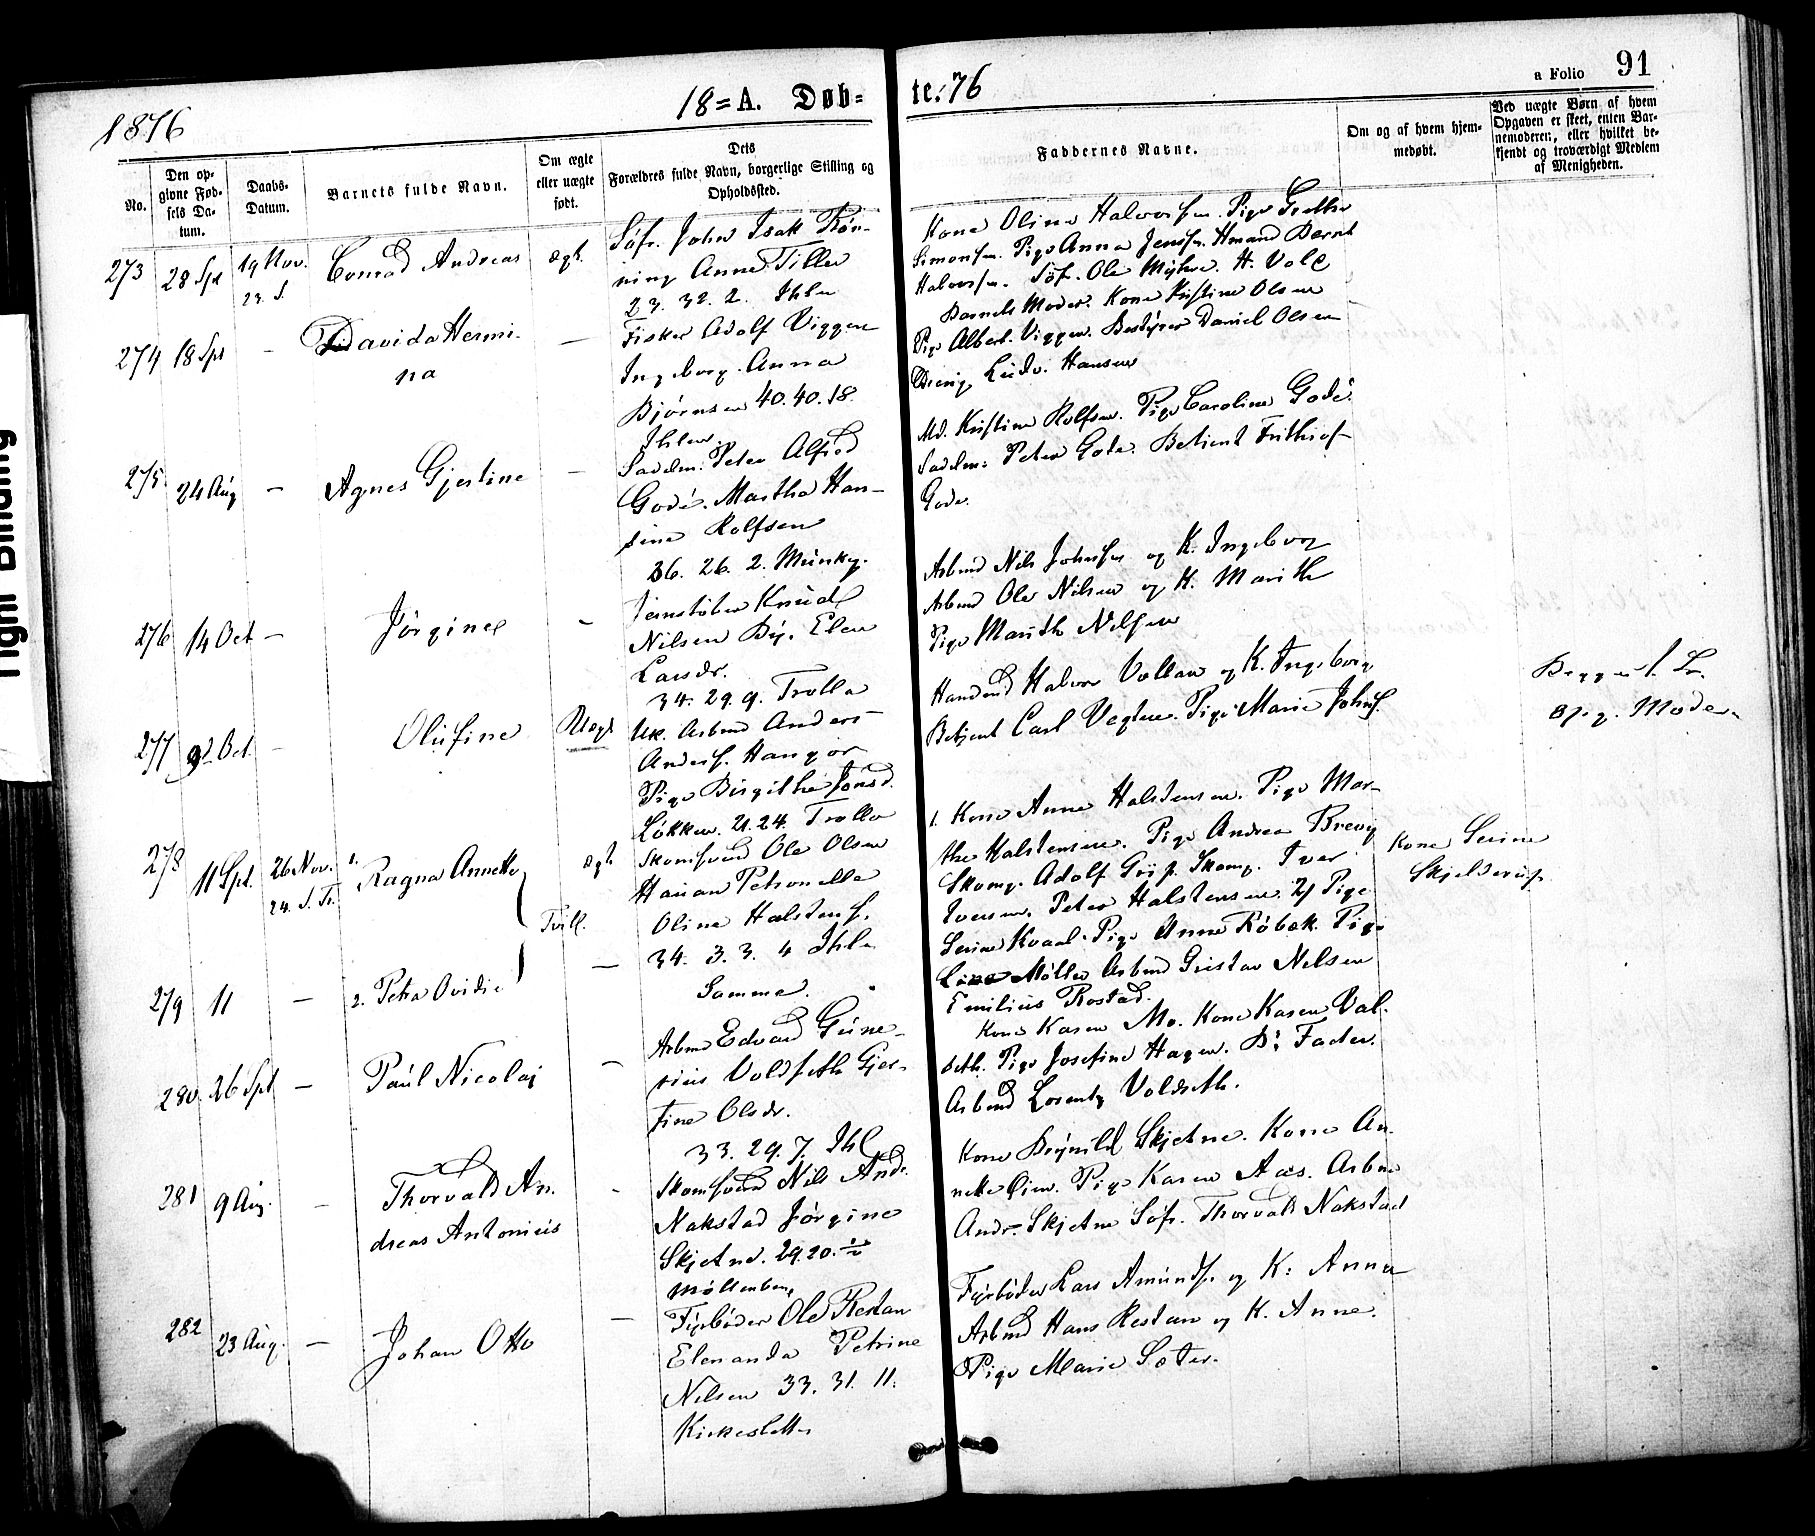 Tight Binding
1876
18=A. Døb=
te. 76
a Folio 91
No.
Den op-
givne Fød-
sels Da-
tum.
Daabs-
Datum.
Barnets fulde Navn.
Om ægte
eller uægte
født.
Dets
Forældres fulde Navn, borgerlige Stilling og
Opholdssted.
Faddernes Navne.
Om og af hvem hjem-
medøbt.
Ved uægte Børn af hvem
Opgaven er skeet, enten Bar-
nemoderen, eller hvilket be-
kjendt og troværdigt Medlem
af Menigheden.
273 28 Spt 19 Nov. Conrad Andreas ægt.
23. S.
Søfr. John Isak Røn-
ning Anne Tiller
23. 32. 2. Ihlen
Kone Oline Halvorsen. Pige Grethe
Simonsen. Pige Anna Jenssen. Hmand Bernt
Halvorsen. Søfr. Ole Myhre. H. Vold
Barnets Moder. Kone Kristine Olsen
274 18 Spt - Davida Hermi-
na -
Fisker Adolf Viggen
Ingeborg Anna
Bjørnsen 40. 40. 18.
Ihlen.
Pige Albert. Viggen. Bestyrer Daniel Olsen
Dreng Ludv. Hansen
275 24 Aug - Agnes Gjertine -
Sadelm: Peter Alfred
Godé. Martha Han-
sine Rolfsen
36. 26. 2. Munkg.
Md. Kristine Rolfsen. Pige Caroline Godé.
Sadelm: Peter Gode. Betient Frithiof
Gode.
276 14 Oct - Jørgine -
Jernstøber Knud
Nilsen By. Elen
Larsdr.
34. 29. 9. Trolla
Arbmd Nils Johnsen og K. Ingeborg
Arbmd Ole Nilsen og K. Marith
Pige Marith Nilsen
277 9d Oct. - Olufine Uægt
Uk. Arbmd Anders
Anders. Hangør
Pige Birgithe Jonsd.
Løkken. 21. 24. Trolla
Handmd Halvor Vollan og K. Ingeborg
Betjent Carl Vegten. Pige Marie Johns.
Begge 1. L.
Opg. Moder
278 11 Spt. 26 Nov. 1. Ragna Annette ægt
24. S. Tr. Tvill.
Skomsvend Ole Olsen
Harian Petronelle
Oline Halstens.
34. 3.3. 4 Ihlen
1. Kone Anne Halstensen. Pige Mar-
the Halstensen. Pige Andrea Brevig
Skomg. Adolf Grip. Skomg. Iver
Iversen. Peter Halstensen. 2) Pige
Serine Kvaal. Pige Anne Røbæk. Pige
Line Møller Arbmd Gustav Nelsen
Emilius Rostad.
Kone Serine
Skjelderup.
279 11 - 2. Petra Ovidie -
Samme.
280. 26 Spt - Paul Nicolaj -
Arbmd Edvard Gune-
rius Voldseth Gjer-
tine Olsdr.
33. 29. 7. Ihl
Kone Karen Mo. Kone Karen Val-
seth. Pige Josefine Hagen. B: Fader.
Arbmd Lorentz Voldseth.
281 9 Aug. - Thorvald An-
dreas Antonius -
Skomsvend Nils Andr.
Nakstad Jørgine
Skjetne. 29. 20. ½
Møllenberg
Kone Brynild Skjetne. Kone An-
nette Øien. Pige Karen Aas. Arbm
Andr. Skjetne Søfr. Thorvald Nakstad
282 23 Aug. - Johan Otto -
Fyrbøder Ole Restan
Elenanda Petrine
Nilsen 33. 31. 11.
Kirkesletten
Fyrbøder Lars Amunds. og K: Anna
Arbmd Hans Restan og K. Anne.
Pige Marie Sæter.